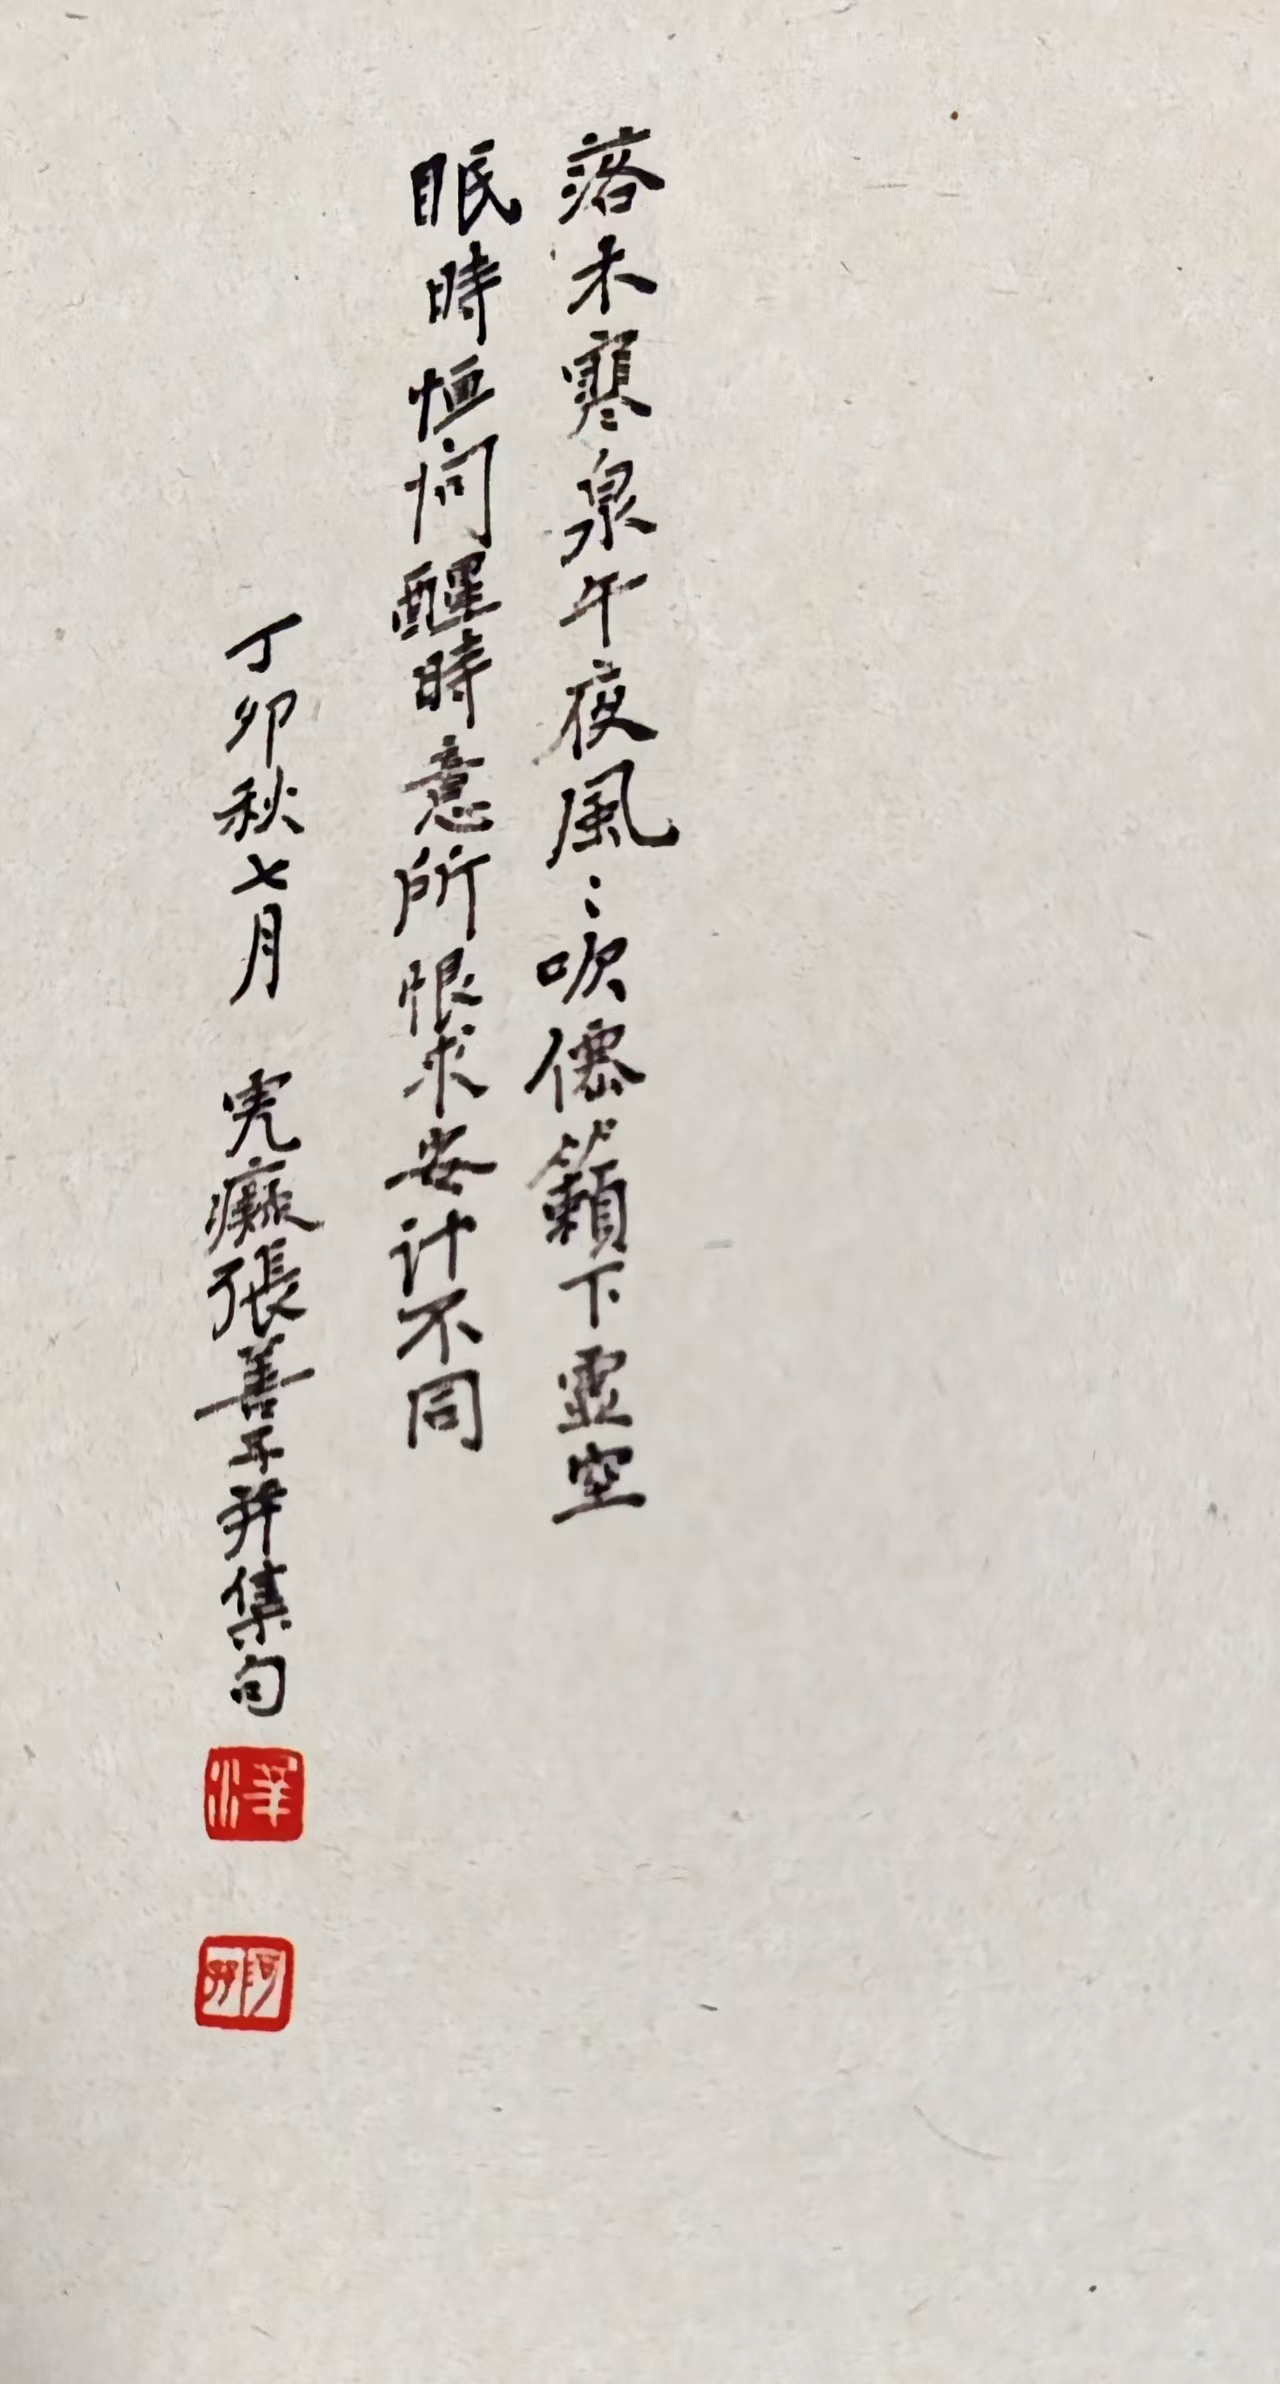 落木寒泉午夜風〻吹僊籟下靈空
眠時恒向醒時意所恨求安計不同
丁卯秋七月 虎癡張善子并集句
澤